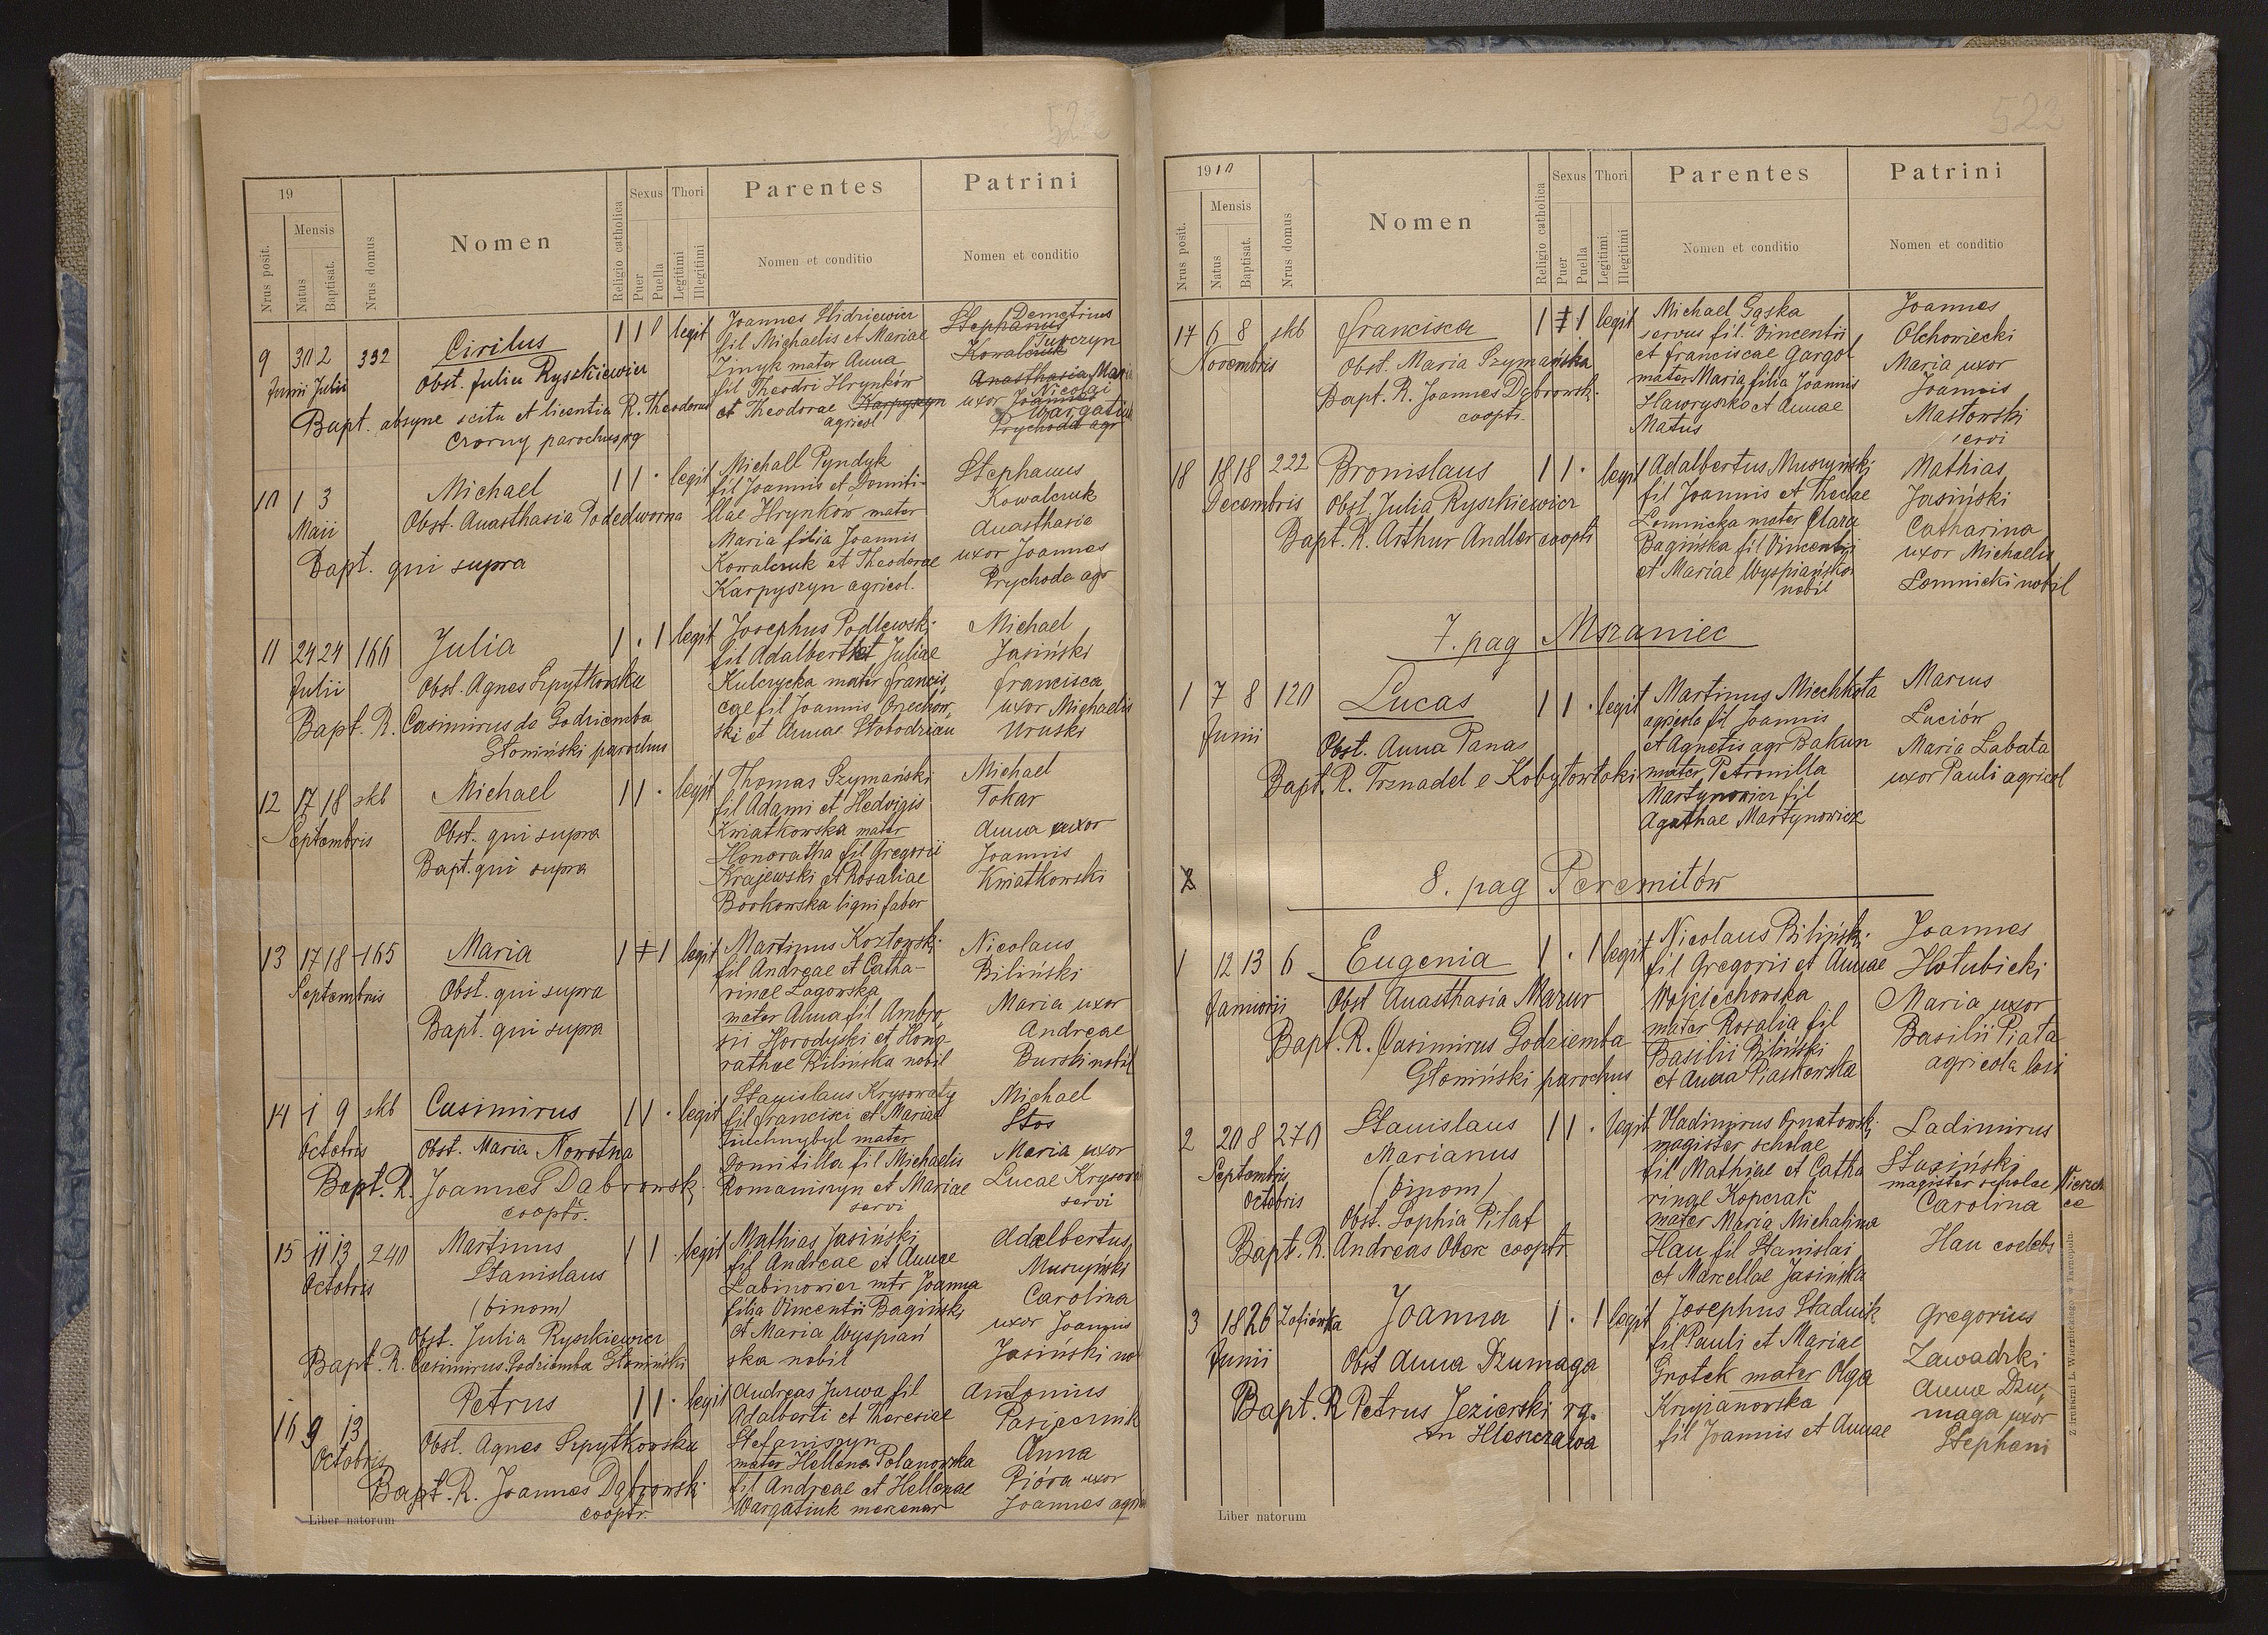 522
19
Nrus posit.
Mensis
Natus
Baptisat.
Nrus domus
Nomen
Religio catholica
Sexus
Puer
Puella
Thori
Legitimi
Illegitimi
Parentes
Nomen et conditio
Patrini
Nomen et conditio
9 30 2 332 Cirilus 1 1 0 legit
Junii Julii
Obst. Julia Ryszkiewicz
Bapt. absque scitu et licentia R. Theodorus
Czorny parochus rg
Joannes Hidziewicz
fil Michaelis et Mariae
Zinyk mater Anna
fil Theodri Hrynków
et Theodorae Karpyszyn
agricol
Demetrius
Stephanus
Turczyn
Kowalczuk
Anasthasia Maria
Nicolai
uxor Joannes
Wargatiuk
Prychoda agr
10 1 3 Michael 1 1 · legit
Maii
Obst. Anasthasia Podedworna
Bapt. qui supra
Michall Pyndyk
fil Joannis et Domiti-
llae Hrynków mater
Maria filia Joannis
Kowalczuk et Theodorae
Karpyszyn agricol.
Stephanus
Kowalczuk
Anasthasia
uxor Joannes
Prychoda agr
11 24 24 166 Julia 1 · 1 legit
Julii
Obst. Agnes Szpytkowska
Bapt. R. Casimirus de Godziemba
Słoniński parochus
Josephus Podlewski
fil Adalberti et Juliae
Kulczycka mater Francis
cae fil Joannis Orzechow
ski et Annae Słobodzian
Michael
Jasiński
Francisca
uxor Michaelis
Uruski
12 17 18 skb Michael 1 1 · legit
Septembris
Obst. qui supra
Bapt. qui supra
Thomas Szymański
fil Adami et Hedvigis
Kwiatkowska mater
Honoratha fil Gregorii
Krajewski et Rosaliae
Borkowska ligni faber
Michael
Tokar
Anna uxor
Joannis
Kwiatkowski
13 17 18 165 Maria 1 ‡ 1 legit
Septembris
Obst. qui supra
Bapt. qui supra
Martinus Kozłowski
fil Andreae et Catha-
rinae Łagowska
mater Anna fil Ambro
sii Horodyski et Hono
rathae Bilińska nobil
Nicolaus
Biliński
Maria uxor
Andreae
Burski nobil
14 1 9 skb Casimirus 1 1 · legit
Octobris
Obst. Maria Nowotna
Bapt. R. Joannes Dąbrowski
cooptr.
Stanislaus Krysowaty
fil Francisci et Mariae
mater
Domitilla fil Michaelis
Romaniszyn et Mariae
servi
Michael
Stos
Maria uxor
Lucae Krysowa
servi
15 11 13 240 Martinus 1 1 legit
Octobris
Stanislaus
(binom)
Obst. Julia Ryszkiewicz
Bapt. R. Casimirus Godziemba Słoniński
Mathias Jasiński
fil Andreae et Annae
Łabinowicz mtr Joanna
filia Vincentii Bagiński
et Maria Wyspiań
ska nobil
Adalbertus
Muszyński
Carolina
uxor Joannes
Jasiński no
16 9 13 Petrus 1 1 · legit
Octobris
Obst. Agnes Szpytkowska
Bapt. R. Joannes Dąbrowski
cooptr.
Andreas Jurwa fil
Adalberti et Theresiae
Stefaniszyn
mater Hellena Polanowska
fil Andreae et Hellenae
Wargatiuk mercenar
Antonius
Pasiecznik
Anna
Pióra uxor
Joannes agric
Liber natorum
522
1910
Nrus posit.
Mensis
Natus
Baptisat.
Nrus domus
Nomen
Religio catholica
Sexus
Puer
Puella
Thori
Legitimi
Illegitimi
Parentes
Nomen et conditio
Patrini
Nomen et conditio
17 6 8 skb Francisca 1 ‡ 1 legit
Novembris
Obst. Maria Szymańska
Bapt. R. Joannes Dąbrowsk.
cooptr.
Michael Gąska
servus fil. Vincentii
et Franciscae Gargol
mater Maria filia Joannis
Hawryszko et Annae
Matus
Joannes
Olchowiecki
Maria uxor
Joannis
Masłowski
servi
18 18 18 222 Bronislaus 1 1 · legit
Decembris
Obst. Julia Ryszkiewicz
Bapt. R. Arthur Andler cooptr
Adalbertus Muszyński
fil Joannis et Theclae
Łomnicka mater Clara
Bagińska fil Vincentii
et Mariae Wyspiańska
nobil
Mathias
Jasiński
Catharina
uxor Michaelis
Łomnicki nobil
7. pag Mszaniec
1 7 8 120 Lucas 1 1 · legit
Junii
Obst. Anna Panas
Bapt. R. Trznadel e Kobyłowłoki
Martinus Miechkota
agricola fil Joannis
et Agnetis agr Bakun
mater Petronilla
Martynowicz fil
Agathae Martynowicz
Marcus
Luciów
Maria Łabata
uxor Pauli agricol
8. pag Peremiłów
1 12 13 6 Eugenia 1 · 1 legit
Januarii
Obst Anasthasia Mazur
Bapt. R. Casimirus Godziemba
Słoniński parochus
Nicolaus Biliński
fil Gregorii et Annae
Wojciechowska
mater Rosalia fil
Basilii Biliński
et Anna Piaskowska
Joannes
Hołubicki
Maria uxor
Basilii Piata
agricola loci
2 20 8 270 Stanislaus 1 1 · legit
Septembris
Octobris
Marianus
(binom)
Obst. Sophia Piłat
Bapt. R. Andreas Obak cooptr
Vladimirus Ornatowski
magister scholae
fil Mathiae et Catha
rinae Kopczak
mater Maria Michalina
Hau fil Stanislai
et Marcellae Jasińska
Ladimirus
Stasiński
magister scholae
Carolina
Hau coelebs
3 18 26 Zofiówka Joanna 1 · 1 legit
Junii
Obst Anna Dzumaga
Bapt. R Petrus Jezierski rg.
in Hleszczawa
Josephus Stadnik
fil Pauli et Mariae
Grotek mater Olga
Kryżanowska
fil Joannis et Annae
Gregorius
Zawadzki
Anna Dzu
maga uxor
Stephani
Liber natorum
Z drukarni L. Wierzbickiego w Tarnopolu.